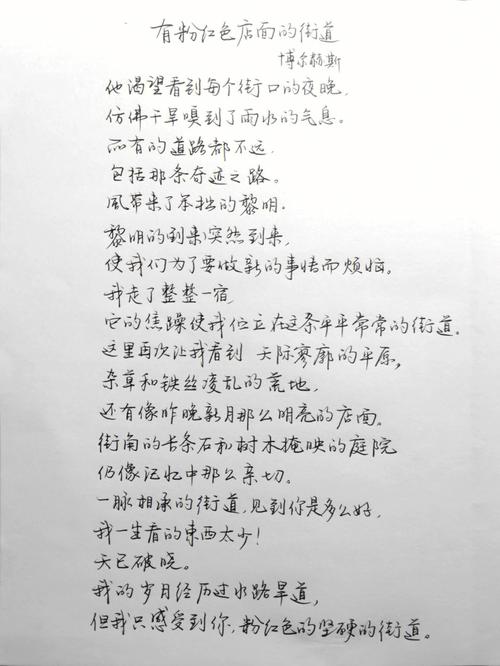 有粉红色店面的街道
博尔赫斯
他渴望看到每个街口的夜晚,
仿佛干旱嗅到了雨水的气息。
所有的道路都不远,
包括那条奇迹之路。
风带来了笨拙的黎明.
黎明的到来突然到来,
使我们为了要做新的事情而烦恼。
我走了整整一宿,
它的焦躁使我伫立在这条平平常常的街道.
这里再次让我看到 天际寥廓的平原,
杂草和铁丝凌乱的荒地,
还有像昨晚新月那么明亮的店面。
街角的长条石和树木掩映的庭院
仍像记忆中那么亲切。
一脉相承的街道,见到你是多么好,
我一生看的东西太少!
天已破晓。
我的岁月经历过水路旱道,
但我只感受到你,粉红色的坚硬的街道。